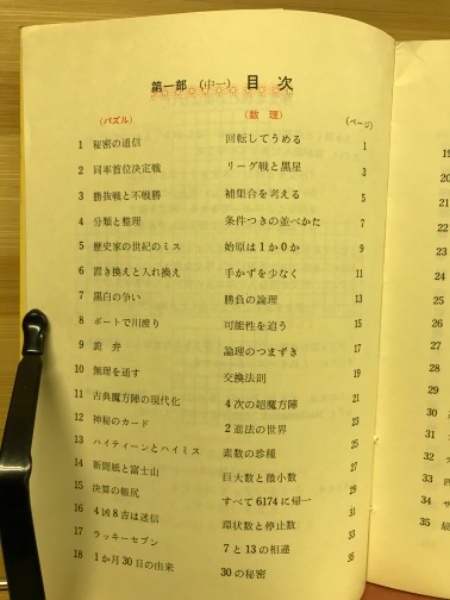 第一部 (中一) 目次
(パズル) (数理) (ページ)
1 秘密の通信 回転してうめる 1
2 同率首位決定戦 リーグ戦と黒星 3
3 勝抜戦と不戦勝 補集合を考える 5
4 分類と整理 条件つきの並べかた 7
5 歴史家の世紀のミス 始原は1か0か 9
6 置き換えと入れ換え 手かずを少なく 11
7 黒白の争い 勝負の論理 13
8 ボートで川渡り 可能性を追う 15
9 詭弁 論理のつまずき 17
10 無理を通す 交換法則 19
11 古典魔方陣の現代化 4次の超魔方陣 21
12 神秘のカード 2進法の世界 23
13 ハイティーンとハイミス 素数の珍種 25
14 新聞紙と富士山 巨大数と微小数 27
15 決算の帳尻 すべて6174に帰一 29
16 4凶8吉は迷信 環状数と停止数 31
17 ラッキーセブン 7と13の相違 33
18 1か月30日の由来 30の秘密 35
19
20
21
22
23
24
25
26
27
28
29
30
31
32
33
34
35